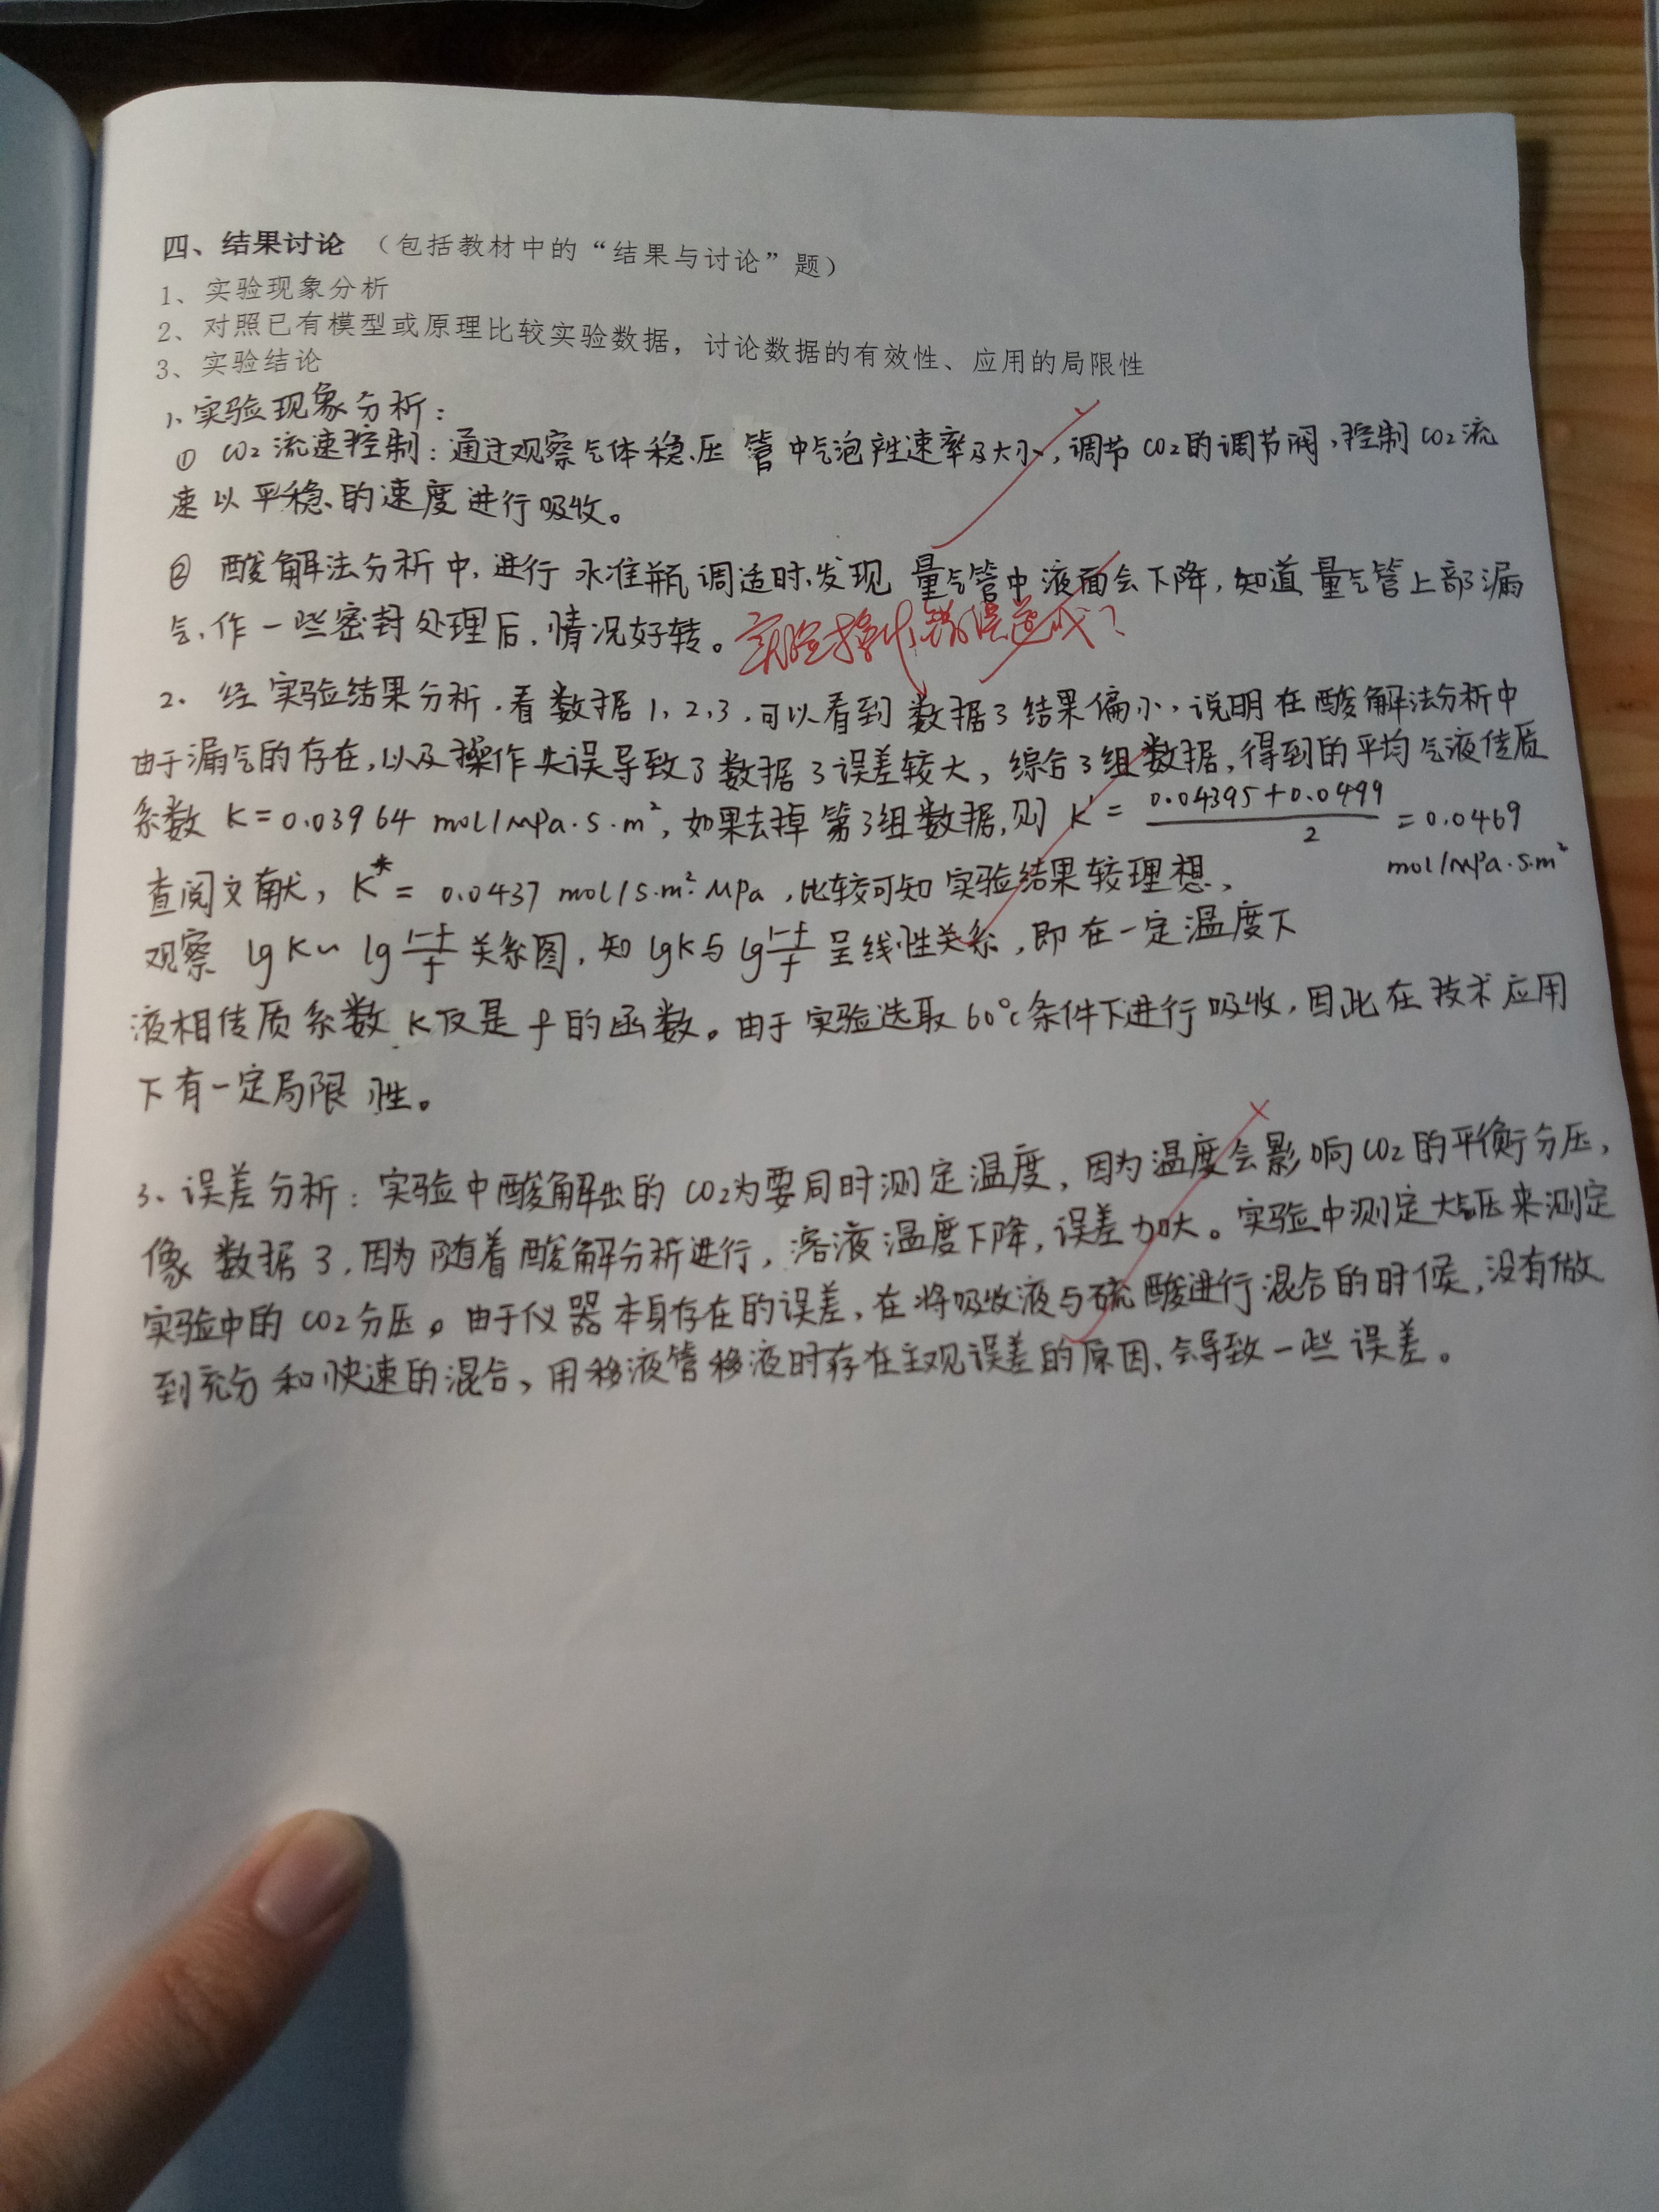 四、结果讨论 （包括教材中的“结果与讨论”题）
1、实验现象分析
2、对照已有模型或原理比较实验数据，讨论数据的有效性、应用的局限性
3、实验结论
1、实验现象分析：
① CO2 流速控制：通过观察气体稳压管中气泡产生速率及大小，调节CO2的调节阀，控制CO2流
速以平稳的速度进行吸收。
② 酸解法分析中，进行水准瓶调适时，发现量气管中液面会下降，知道量气管上部漏
气，作一些密封处理后，情况好转。实验操作错误造成？
2. 经实验结果分析，看数据1，2，3，可以看到数据3结果偏小，说明在酸解法分析中
由于漏气的存在，以及操作失误导致了数据3误差较大，综合3组数据，得到的平均气液传质
系数 K=0.03964 mol/MPa·s·m²，如果去掉第3组数据，则 K' = (0.04395+0.0499)/2 = 0.0469
mol/MPa·s·m²
查阅文献，K* = 0.0437 mol/s·m²·MPa，比较可知实验结果较理想，
观察 lgK~lg(1-f)/f 关系图，知 lgK与lg(1-f)/f 呈线性关系，即在一定温度下
液相传质系数K仅是f的函数。由于实验选取60℃条件下进行吸收，因此在技术应用
下有一定局限性。
3、误差分析：实验中酸解出的CO2为要同时测定温度，因为温度会影响CO2的平衡分压，
像数据3，因为随着酸解分析进行，溶液温度下降，误差加大。实验中测定大气压来测定
实验中的CO2分压。由于仪器本身存在的误差，在将吸收液与硫酸进行混合的时候，没有做
到充分和快速的混合，用移液管移液时存在主观误差的原因，会导致一些误差。